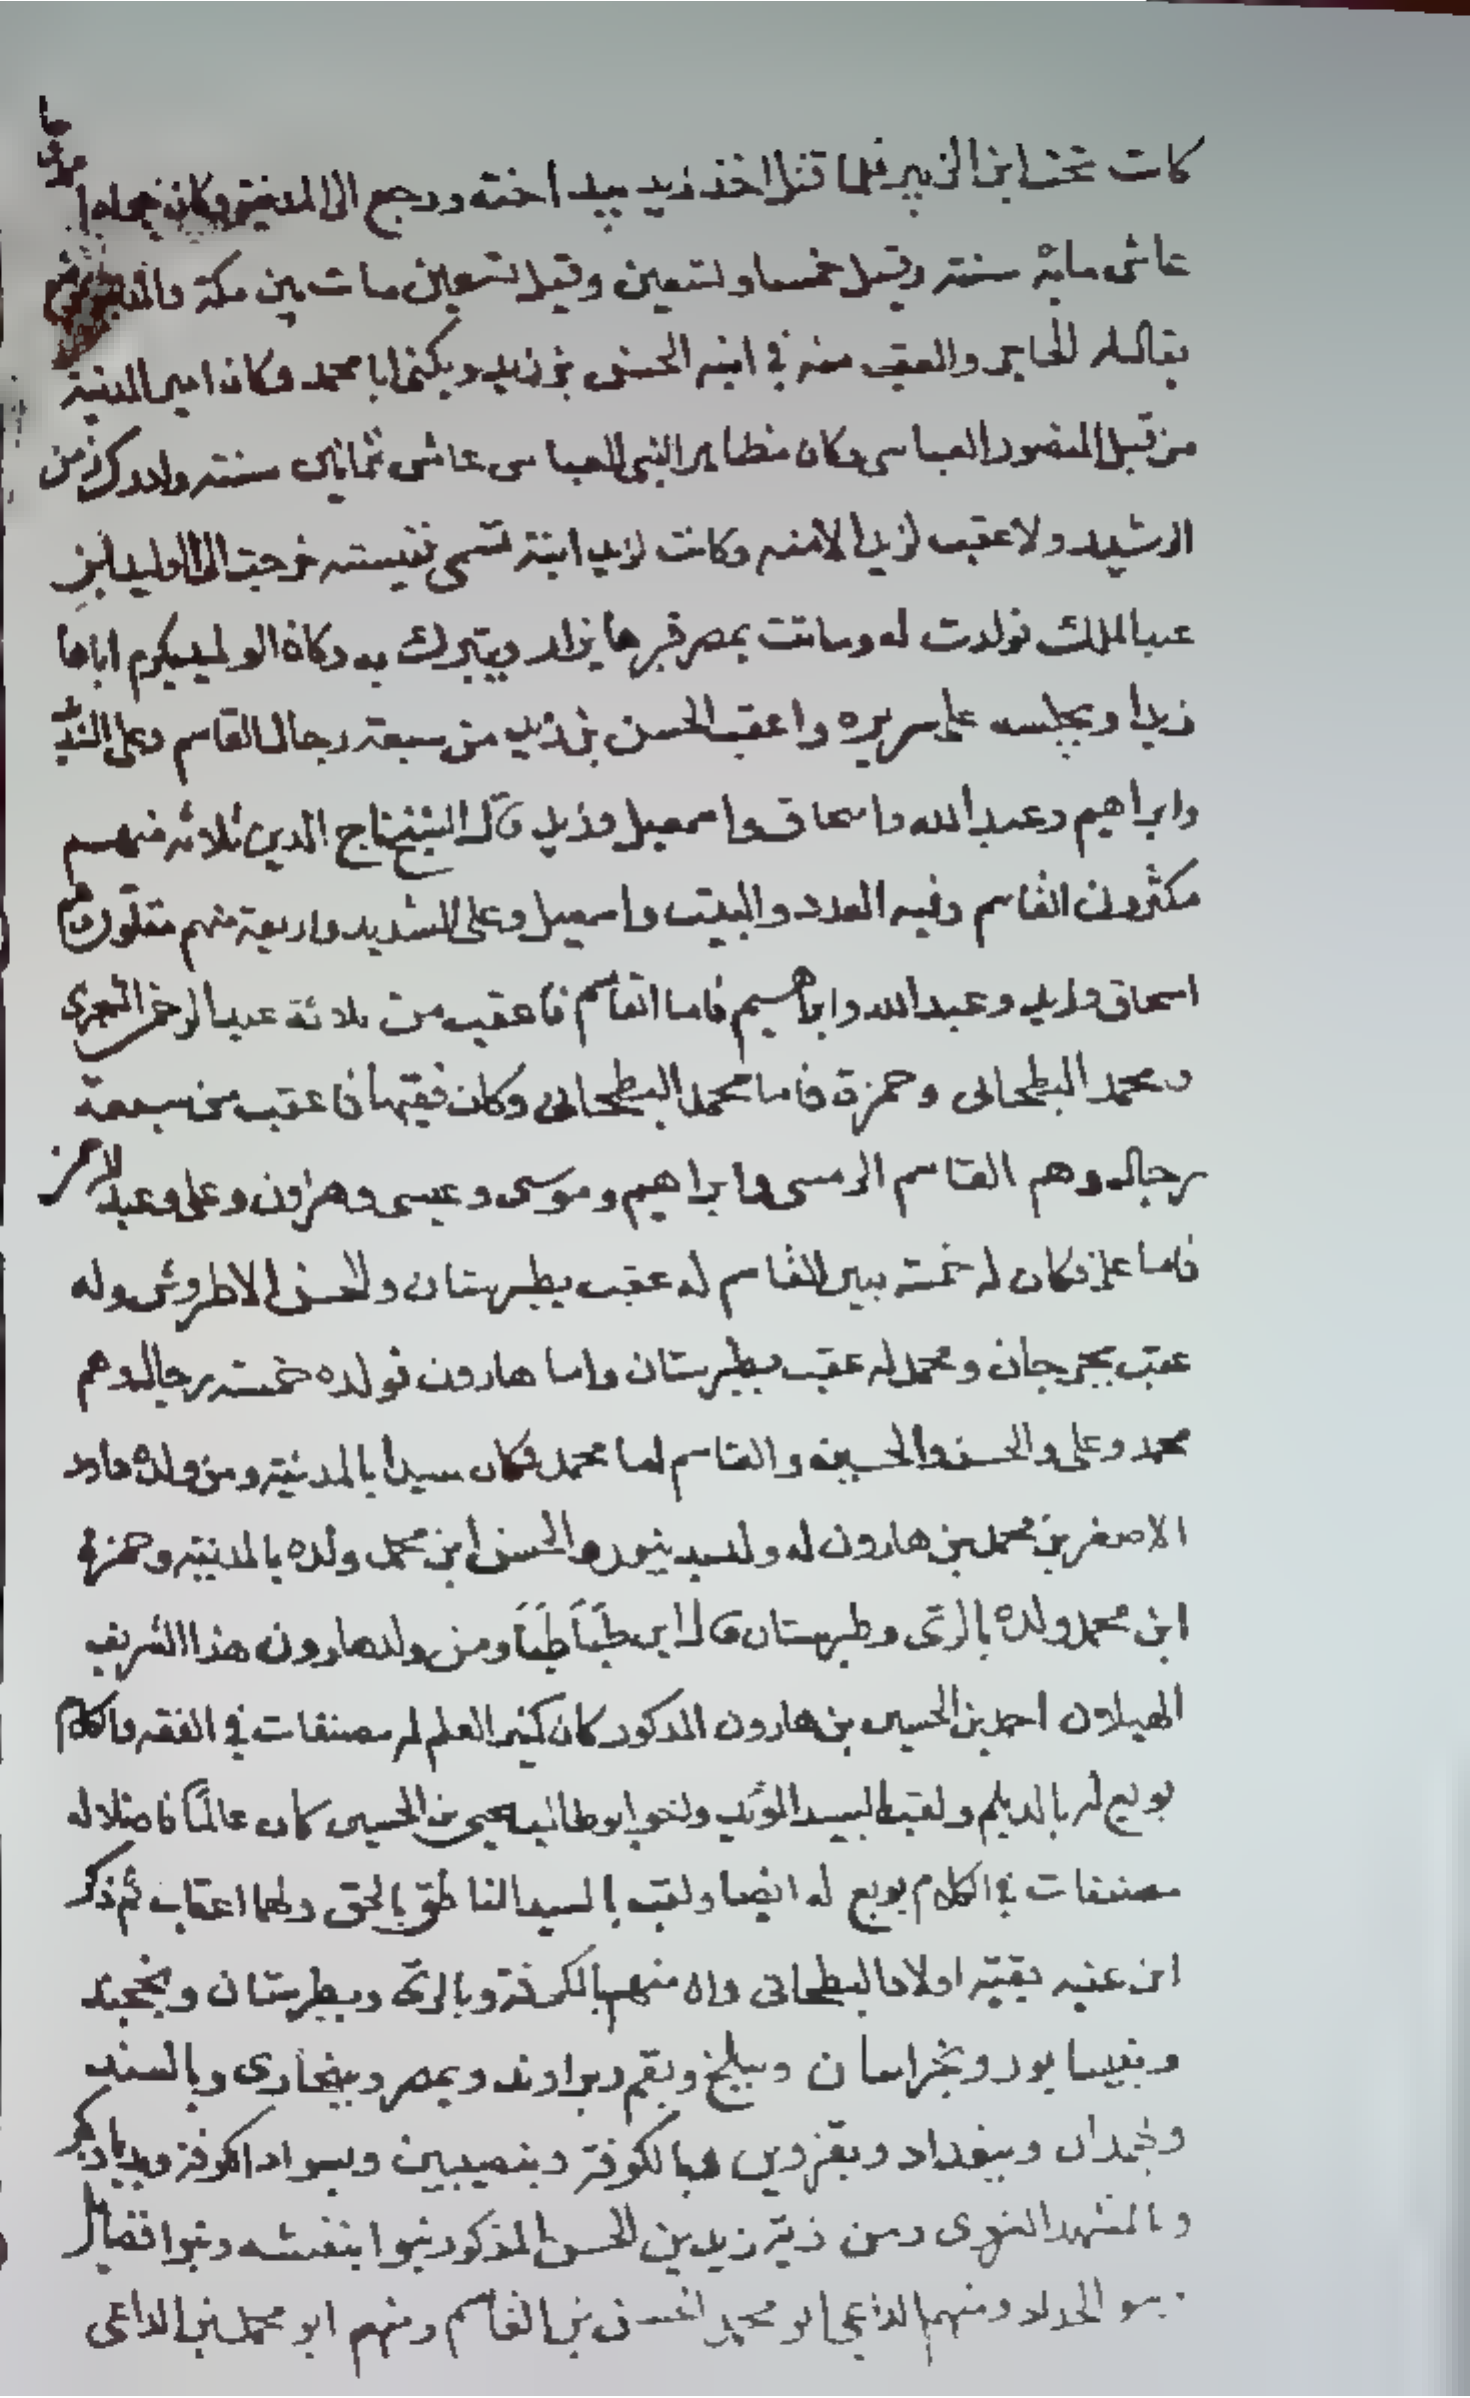 كانت تحت ابن الزبير فلما قتل اخذ زيد بيد اخته ورجع الى المدينة وكان جوادا
عاش مایة سنة وقيل خمسا وتسعين وقيل تسعين مات بين مكة والمدينة
يقال له الحاجر والعقب منه في ابنه الحسن بن زيد ويكنى ابا محمد وكان امير المدينة
من قبل المنصور العباسي وكان مظاهرا لبني العباس عاش ثمانين سنة وادرك زمن
الرشيد ولا عقب لزيد الا منه وكانت لزيد ابنة تسمى نفيسة خرجت الى الوليد ابن
عبد الملك فولدت له وماتت بمصر قبرها يزار ويتبرك به وكان الوليد يكرم اباها
زيدا ويجلسه على سريره واعقب الحسن بن زيد من سبعة رجال القاسم وعلى
وابراهيم وعبد الله واسحاق واسمعيل وزيد قال الشيخ تاج الدين ثلاثه منهم
مكثرون القاسم وفيه العدد والبيت واسمعيل وعلى الشديد واربعة منهم مقلون وهم
اسحاق وزيد وعبد الله وابراهيم فاما القاسم فاعقب من ثلاثة عبد الرحمن الشجرى
ومحمد البطحانى وحمزة فاما محمد البطحانى وكان فقيها فاعقب من سبعة
رجال وهم القاسم الرمسى وابراهيم وموسى وعيسى وهرون وعلى وعبد الرحمن
فاما على فكان له خمسة بنين القاسم له عقب بطبرستان والحسن الاطروش وله
عقب بجرجان ومحمد له عقب بطبرستان واما هارون فولده خمسة رجال وهم
محمد وعلى والحسن والحسين والقاسم اما محمد فكان سيدا بالمدينة ومن ولده داود
الاصغر بن محمد بن هارون له ولد بدينور والحسن ابن محمد ولده بالمدينة وحمزة
ابن محمد ولده بالرى وطبرستان قال ابن طَبَاطَبَا ومن ولد هارون هذا الشريف
احمد بن الحسين بن هارون المذكور كان كثير العلم له مصنفات في الفقه والكلام
بويع له بالديلم ولقب السيد المؤيد واخوه ابو طالب يحيى بن الحسين كان عالمًا فاضلا له
مصنفات في الكلام بويع له ايضا ولقب بالسيد الناطق بالحق ولهما اعقاب ثم ذكر
ابن عنبه بقية اولاد البطحانى وان منهم بالكوفة وبالرى وبطبرستان وبخجند
وبنيسابور وبخراسان وببلخ وبقم وبراوند وبمصر وببخارى وبالسند
وبهمدان وببغداد وبقزوين وبالكوفة وبنصيبين وبسواد الكوفة
وبالمشهد الغروى ومن ذرية زيد بن الحسن المذكور بنوا بنفشه وبنوا
بنو الحداد ومنهم الداعي ابو محمد الحسن بن القاسم ومنهم ابو محمد بن الداعى